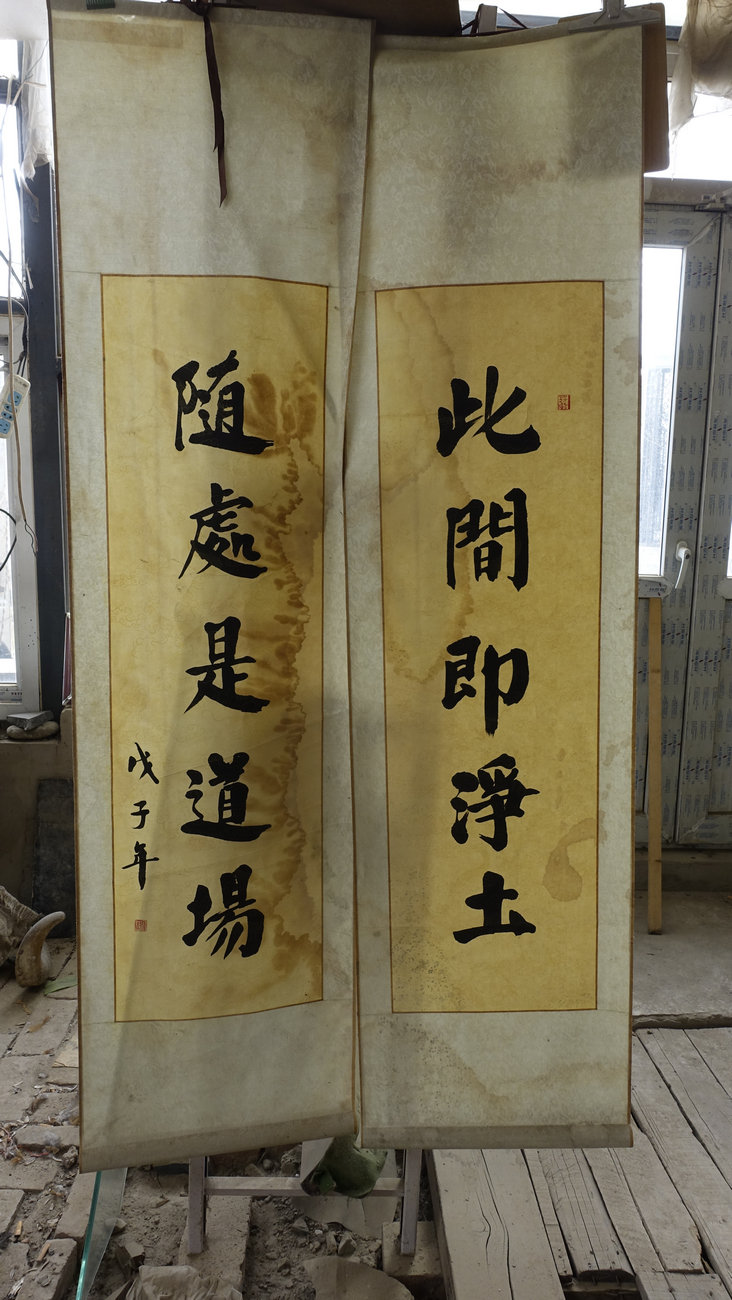 此間即淨土
随處是道場
戊子年